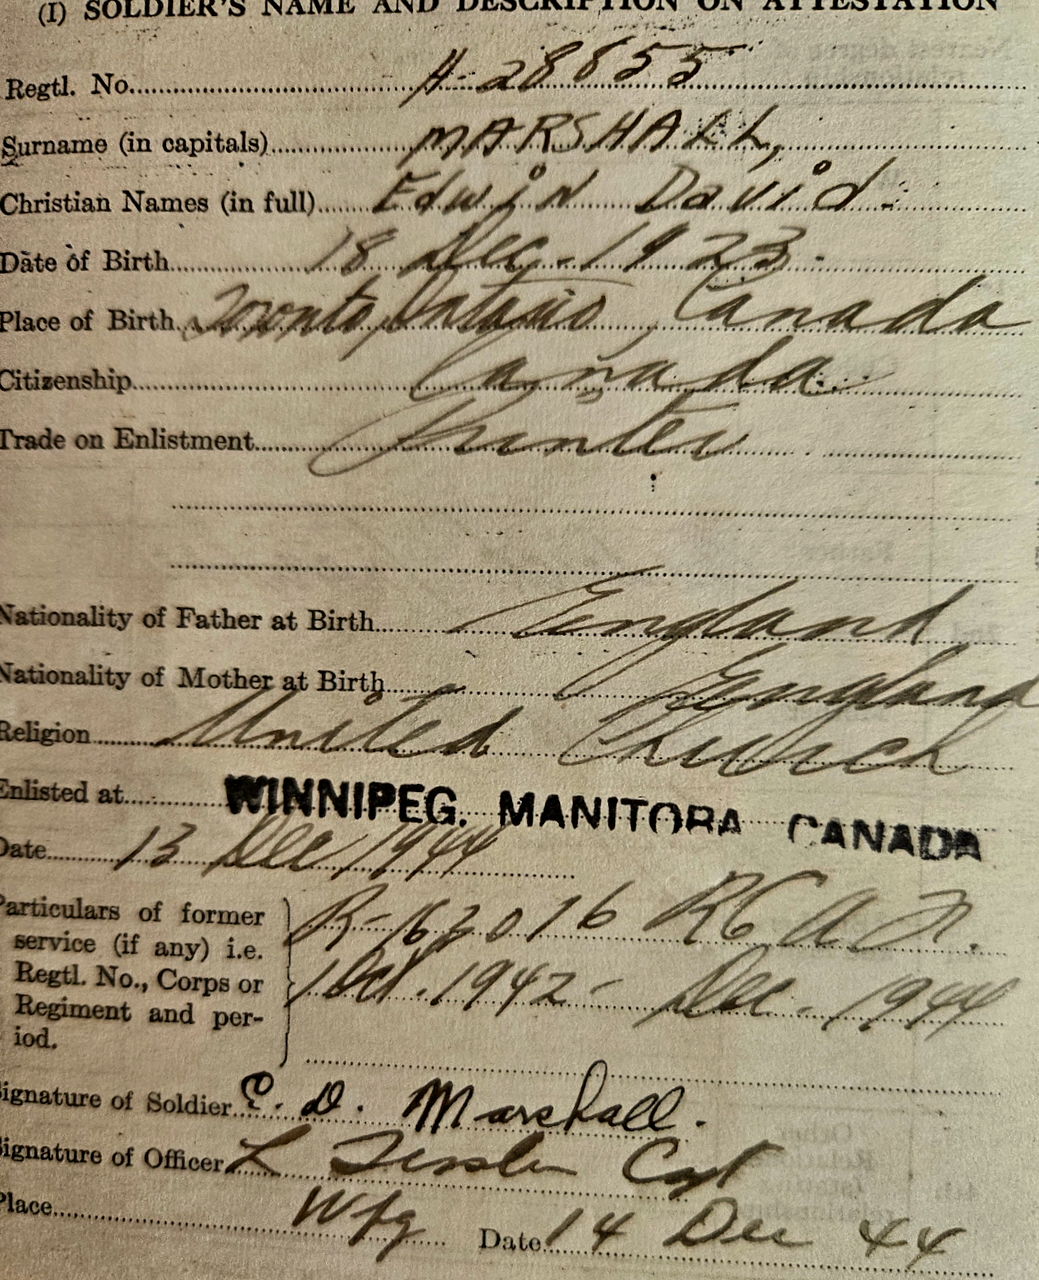 (I) SOLDIER'S NAME AND DESCRIPTION ON ATTESTATION
Regtl. No. H-28855
Surname (in capitals) MARSHALL,
Christian Names (in full) Edwin David.
Date of Birth 18 Dec. 1923.
Place of Birth Toronto, Ontario, Canada
Citizenship Canada.
Trade on Enlistment Printer
Nationality of Father at Birth England
Nationality of Mother at Birth England
Religion United Church
Enlisted at WINNIPEG. MANITOBA CANADA
Date 13 Dec 1944
Particulars of former service (if any) i.e. Regtl. No., Corps or Regiment and per-iod.
R-162016 RCAF.
1 Oct. 1942 - Dec. 1944
Signature of Soldier E. D. Marshall.
Signature of Officer L Capt
Place Wpg Date 14 Dec 44